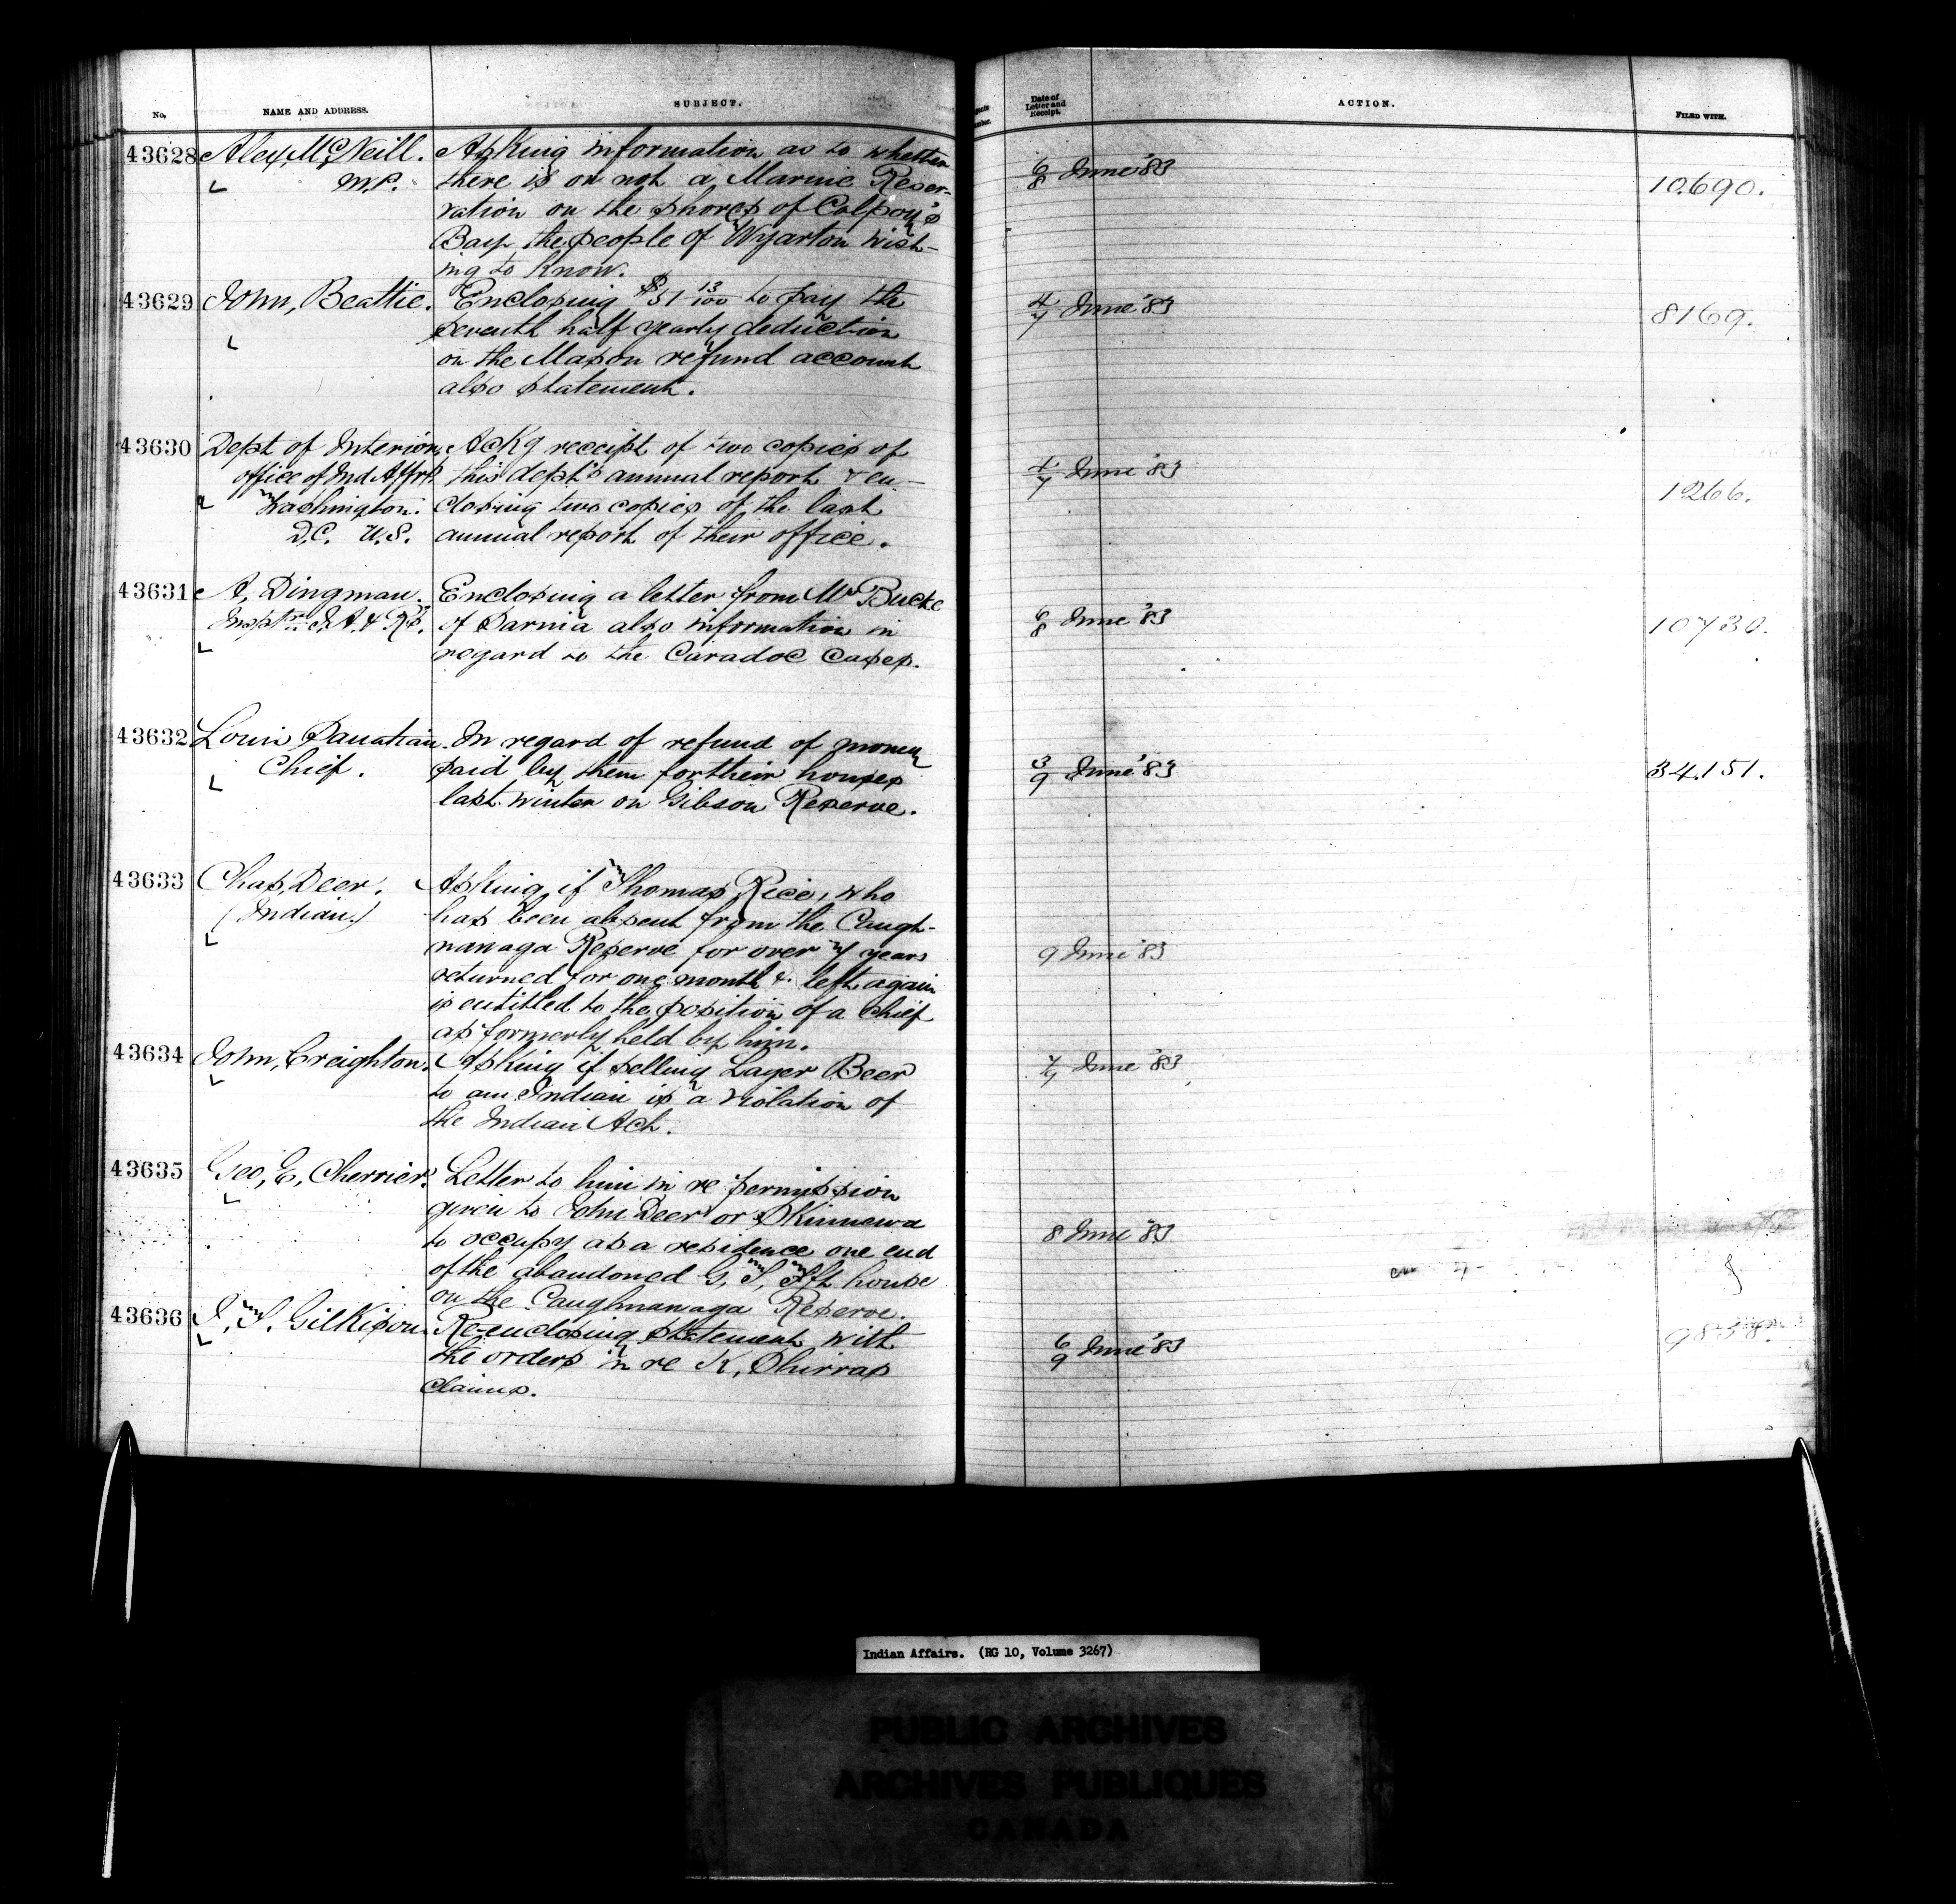 No. NAME AND ADDRESS. SUBJECT. Date of Letter and Receipt. ACTION. FILED WITH.
43628 Alex, McNeill. Asking information as to whether
M.P. there is or not a Marine Reser-
vation on the shores of Colpoy's
Bay the people of Wyarton wish-
ing to know.
6/8 June '83 10690.
43629 John, Beattie. Enclosing $51 13/100 to pay the
seventh half yearly deduction
on the Mason refund account
also statement.
4/7 June '83 8169.
43630 Dept of Interior, Ackg receipt of two copies of
office of Ind Affrs. this dept's annual report & en-
Washington. closing two copies of the last
D.C. U.S. annual report of their office.
June '83 1266.
43631 A, Dingman. Enclosing a letter from Mr Bucke
Insptr I.A. & Rs. of Sarnia also information in
regard to the Caradoc cases.
6/8 June '83 10730.
43632 Louis In regard of refund of money
Chief. paid by them for their houses
last winter on Gibson Reserve.
3/9 June '83 34.151.
43633 Chas, Deer. Asking if Thomas Rice, who
(Indian.) has been absent from the Caugh-
nawaga Reserve for over 7 years
returned for one month & left again
is entitled to the position of a Chief
as formerly held by him.
9 June '83
43634 John, Creighton. Asking if selling Lager Beer
to an Indian is a violation of
the Indian Act.
June '83
43635 Geo, E, Cherrier. Letter to him in re permission
given to John Deer or Skinnewa
to occupy as a residence one end
of the abandoned G, T, Ft house
on the Caughnawaga Reserve.
8 June '83
43636 J, T, Gilkison. Re-enclosing statement with
the orders in re K, Shirras
claims.
6/9 June '83 9838.
Indian Affairs. (RG 10, Volume 3267)
PUBLIC ARCHIVES
ARCHIVES PUBLIQUES
CANADA